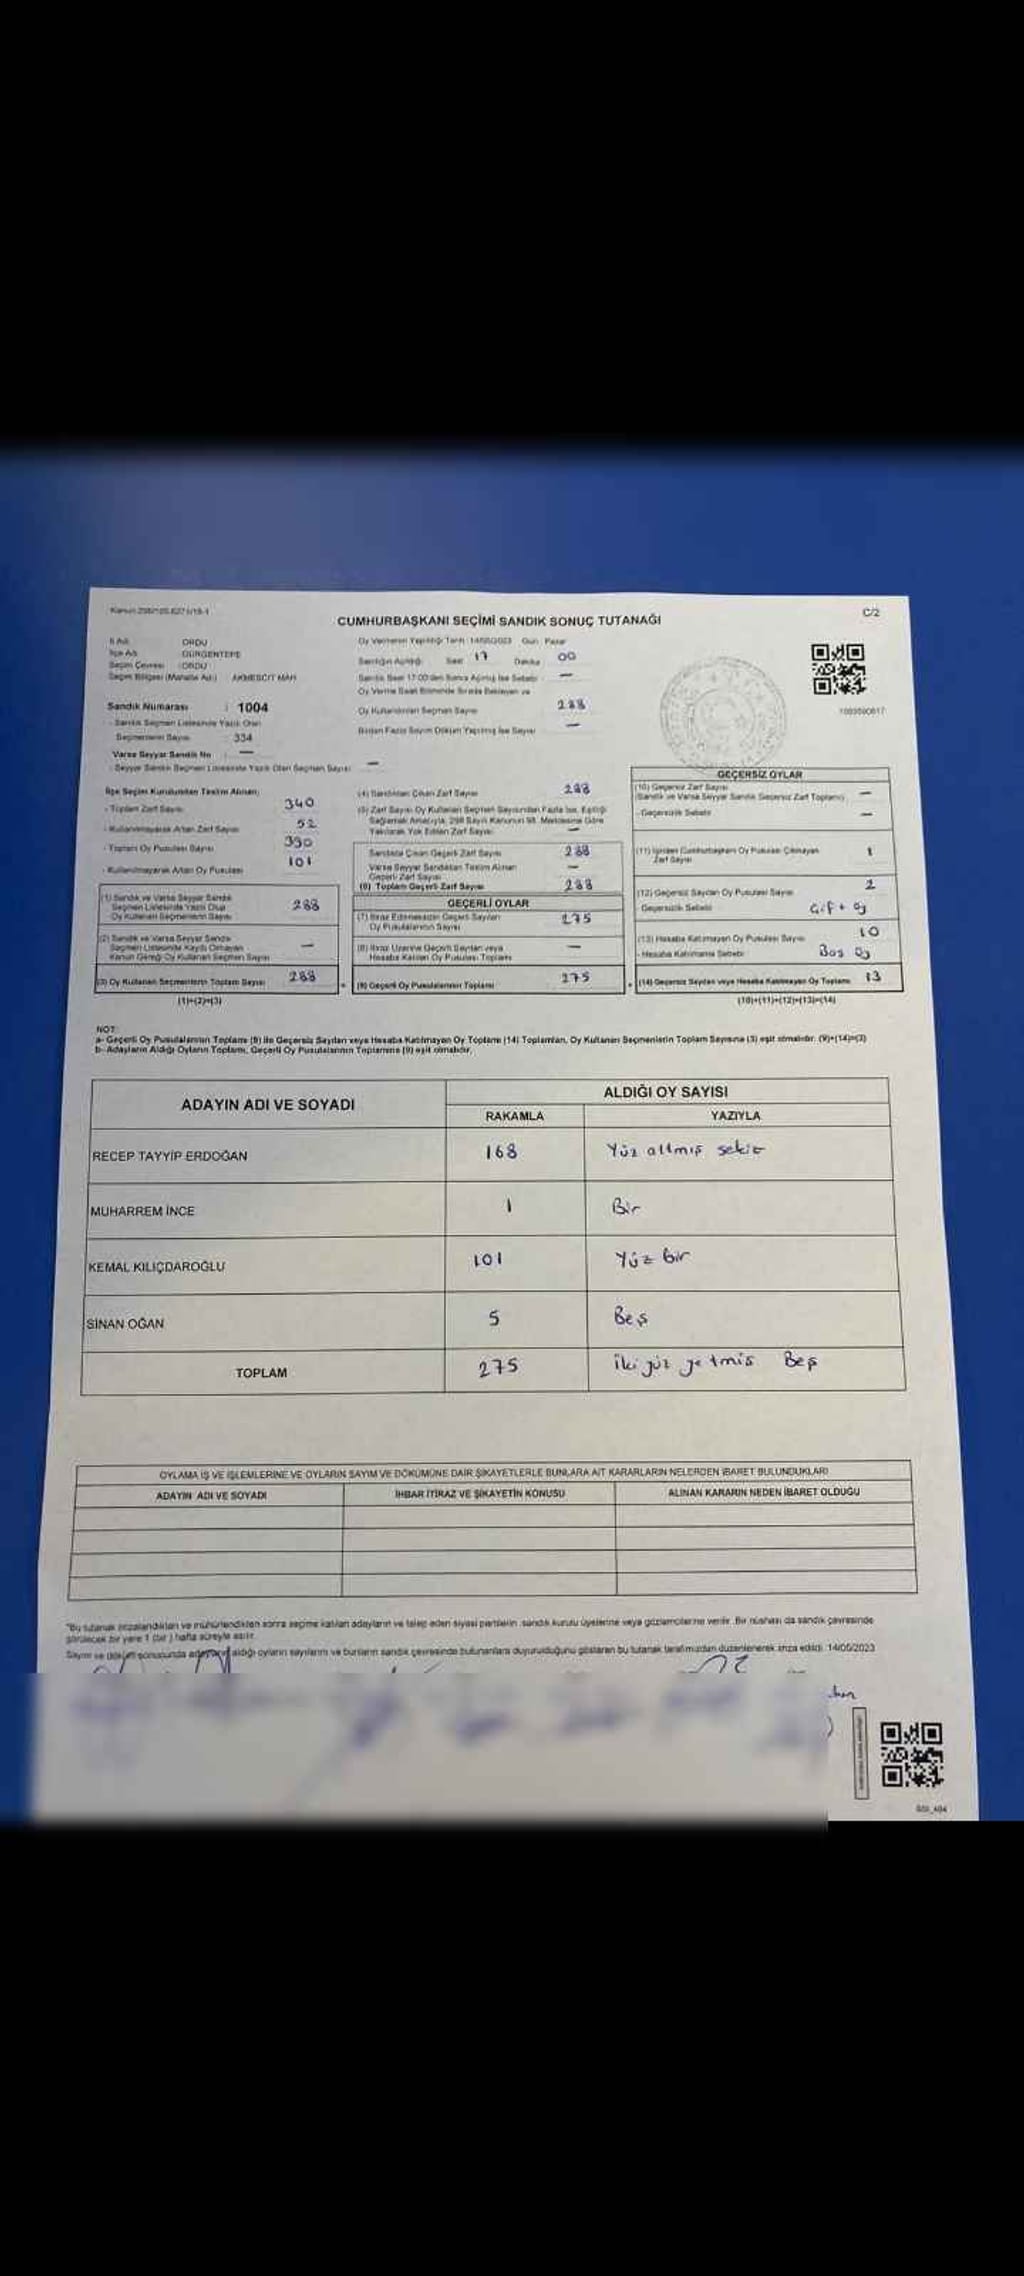 Kanun 298/105,6271/19-1
C/2
CUMHURBAŞKANI SEÇİMİ SANDIK SONUÇ TUTANAĞI
İl Adı : ORDU
İlçe Adı : GÜRGENTEPE
Seçim Çevresi : ORDU
Seçim Bölgesi (Mahalle Adı) : AKMESCİT MAH
Sandık Numarası : 1004
- Sandık Seçmen Listesinde Yazılı Olan
Seçmenlerin Sayısı : 334
Varsa Seyyar Sandık No : —
- Seyyar Sandık Seçmen Listesinde Yazılı Olan Seçmen Sayısı : —
Oy Vermenin Yapıldığı Tarih : 14/05/2023 Gün : Pazar
Sandığın Açıldığı Saat 17 Dakika 00
Sandık Saat 17:00'den Sonra Açılmış İse Sebebi : —
Oy Verme Saati Bitiminde Sırada Bekleyen ve
Oy Kullandırılan Seçmen Sayısı 288
Birden Fazla Sayım Döküm Yapılmış İse Sayısı —
1003590617
İlçe Seçim Kurulundan Teslim Alınan;
- Toplam Zarf Sayısı 340
- Kullanılmayarak Artan Zarf Sayısı 52
- Toplam Oy Pusulası Sayısı 390
- Kullanılmayarak Artan Oy Pusulası 101
(1) Sandık ve Varsa Seyyar Sandık
Seçmen Listesinde Yazılı Olup
Oy Kullanan Seçmenlerin Sayısı 288
(2) Sandık ve Varsa Seyyar Sandık
Seçmen Listesinde Kaydı Olmayan
Kanun Gereği Oy Kullanan Seçmen Sayısı —
(3) Oy Kullanan Seçmenlerin Toplam Sayısı 288
(1)+(2)=(3)
(4) Sandıktan Çıkan Zarf Sayısı 288
(5) Zarf Sayısı Oy Kullanan Seçmen Sayısından Fazla İse, Eşitliği
Sağlamak Amacıyla, 298 Sayılı Kanunun 98. Maddesine Göre
Yakılarak Yok Edilen Zarf Sayısı —
Sandıkta Çıkan Geçerli Zarf Sayısı 288
Varsa Seyyar Sandıktan Teslim Alınan
Geçerli Zarf Sayısı —
(6) Toplam Geçerli Zarf Sayısı 288
GEÇERLİ OYLAR
(7) İtiraz Edilmeksizin Geçerli Sayılan
Oy Pusulalarının Sayısı 275
(8) İtiraz Üzerine Geçerli Sayılan veya
Hesaba Katılan Oy Pusulası Toplamı —
(9) Geçerli Oy Pusulalarının Toplamı 275
GEÇERSİZ OYLAR
(10) Geçersiz Zarf Sayısı
(Sandık ve Varsa Seyyar Sandık Geçersiz Zarf Toplamı) —
- Geçersizlik Sebebi —
(11) İçinden Cumhurbaşkanı Oy Pusulası Çıkmayan
Zarf Sayısı 1
(12) Geçersiz Sayılan Oy Pusulası Sayısı 2
- Geçersizlik Sebebi Çift oy
(13) Hesaba Katılmayan Oy Pusulası Sayısı 10
- Hesaba Katılmama Sebebi Boş Oy
(14) Geçersiz Sayılan veya Hesaba Katılmayan Oy Toplamı 13
(10)+(11)+(12)+(13)=(14)
NOT:
a- Geçerli Oy Pusulalarının Toplamı (9) ile Geçersiz Sayılan veya Hesaba Katılmayan Oy Toplamı (14) Toplamları, Oy Kullanan Seçmenlerin Toplam Sayısına (3) eşit olmalıdır. (9)+(14)=(3)
b- Adayların Aldığı Oyların Toplamı, Geçerli Oy Pusulalarının Toplamına (9) eşit olmalıdır.
ADAYIN ADI VE SOYADI
ALDIĞI OY SAYISI
RAKAMLA YAZIYLA
RECEP TAYYİP ERDOĞAN 168 Yüz altmış sekiz
MUHARREM İNCE 1 Bir
KEMAL KILIÇDAROĞLU 101 Yüz bir
SİNAN OĞAN 5 Beş
TOPLAM 275 İki yüz yetmiş Beş
OYLAMA İŞ VE İŞLEMLERİNE VE OYLARIN SAYIM VE DÖKÜMÜNE DAİR ŞİKAYETLERLE BUNLARA AİT KARARLARIN NELERDEN İBARET BULUNDUKLARI
ADAYIN ADI VE SOYADI İHBAR İTİRAZ VE ŞİKAYETİN KONUSU ALINAN KARARIN NEDEN İBARET OLDUĞU
"Bu tutanak imzalandıktan ve mühürlendikten sonra seçime katılan adayların ve talep eden siyasi partilerin sandık kurulu üyelerine veya gözlemcilerine verilir. Bir nüshası da sandık çevresinde
görülecek bir yere 1 (bir ) hafta süreyle asılır.
Sayım ve döküm sonucunda adayların aldığı oyların sayılarını ve bunların sandık çevresinde bulunanlara duyurulduğunu gösteren bu tutanak tarafımızdan düzenlenerek imza edildi. 14/05/2023